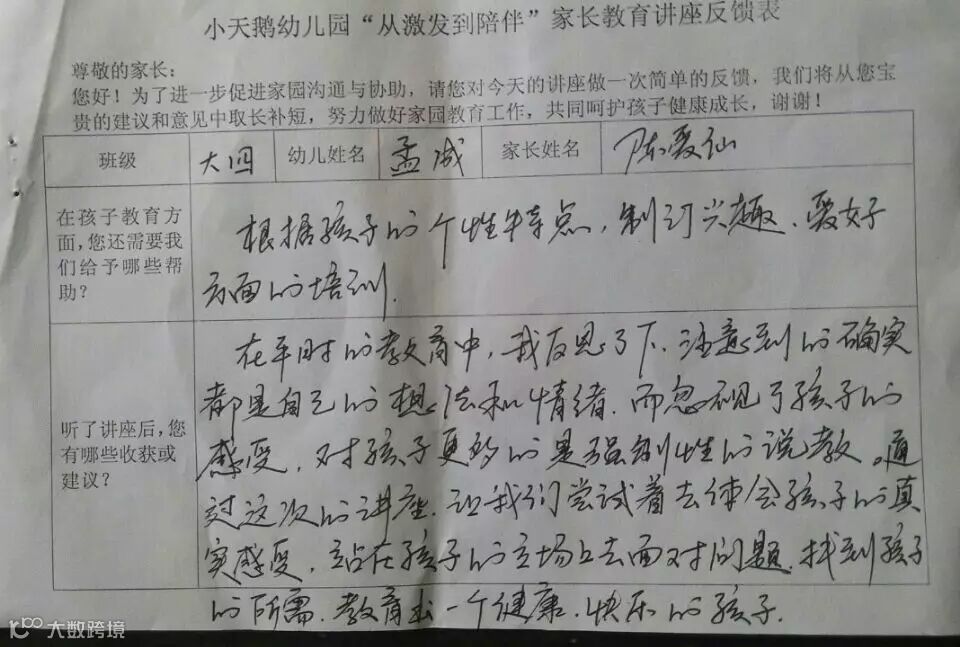 小天鹅幼儿园“从激发到陪伴”家长教育讲座反馈表
尊敬的家长：
您好！为了进一步促进家园沟通与协助，请您对今天的讲座做一次简单的反馈，我们将从您宝
贵的建议和意见中取长补短，努力做好家园教育工作，共同呵护孩子健康成长，谢谢！
班级 大四 幼儿姓名 孟成 家长姓名 陈爱仙
在孩子教育方
面，您还需要我
们给予哪些帮
助？
根据孩子的个性特点，制订兴趣、爱好
方面的培训.
听了讲座后，您
有哪些收获或
建议？
在平时的教育中，我反思了下，注意到的确实
都是自己的想法和情绪.而忽视了孩子的
感受，对孩子更多的是强制性的说教。通
过这次的讲座.让我们尝试着去体会孩子的真
实感受，站在孩子的立场上去面对问题.找到孩子
的所需.教育出一个健康.快乐的孩子.
大数跨境